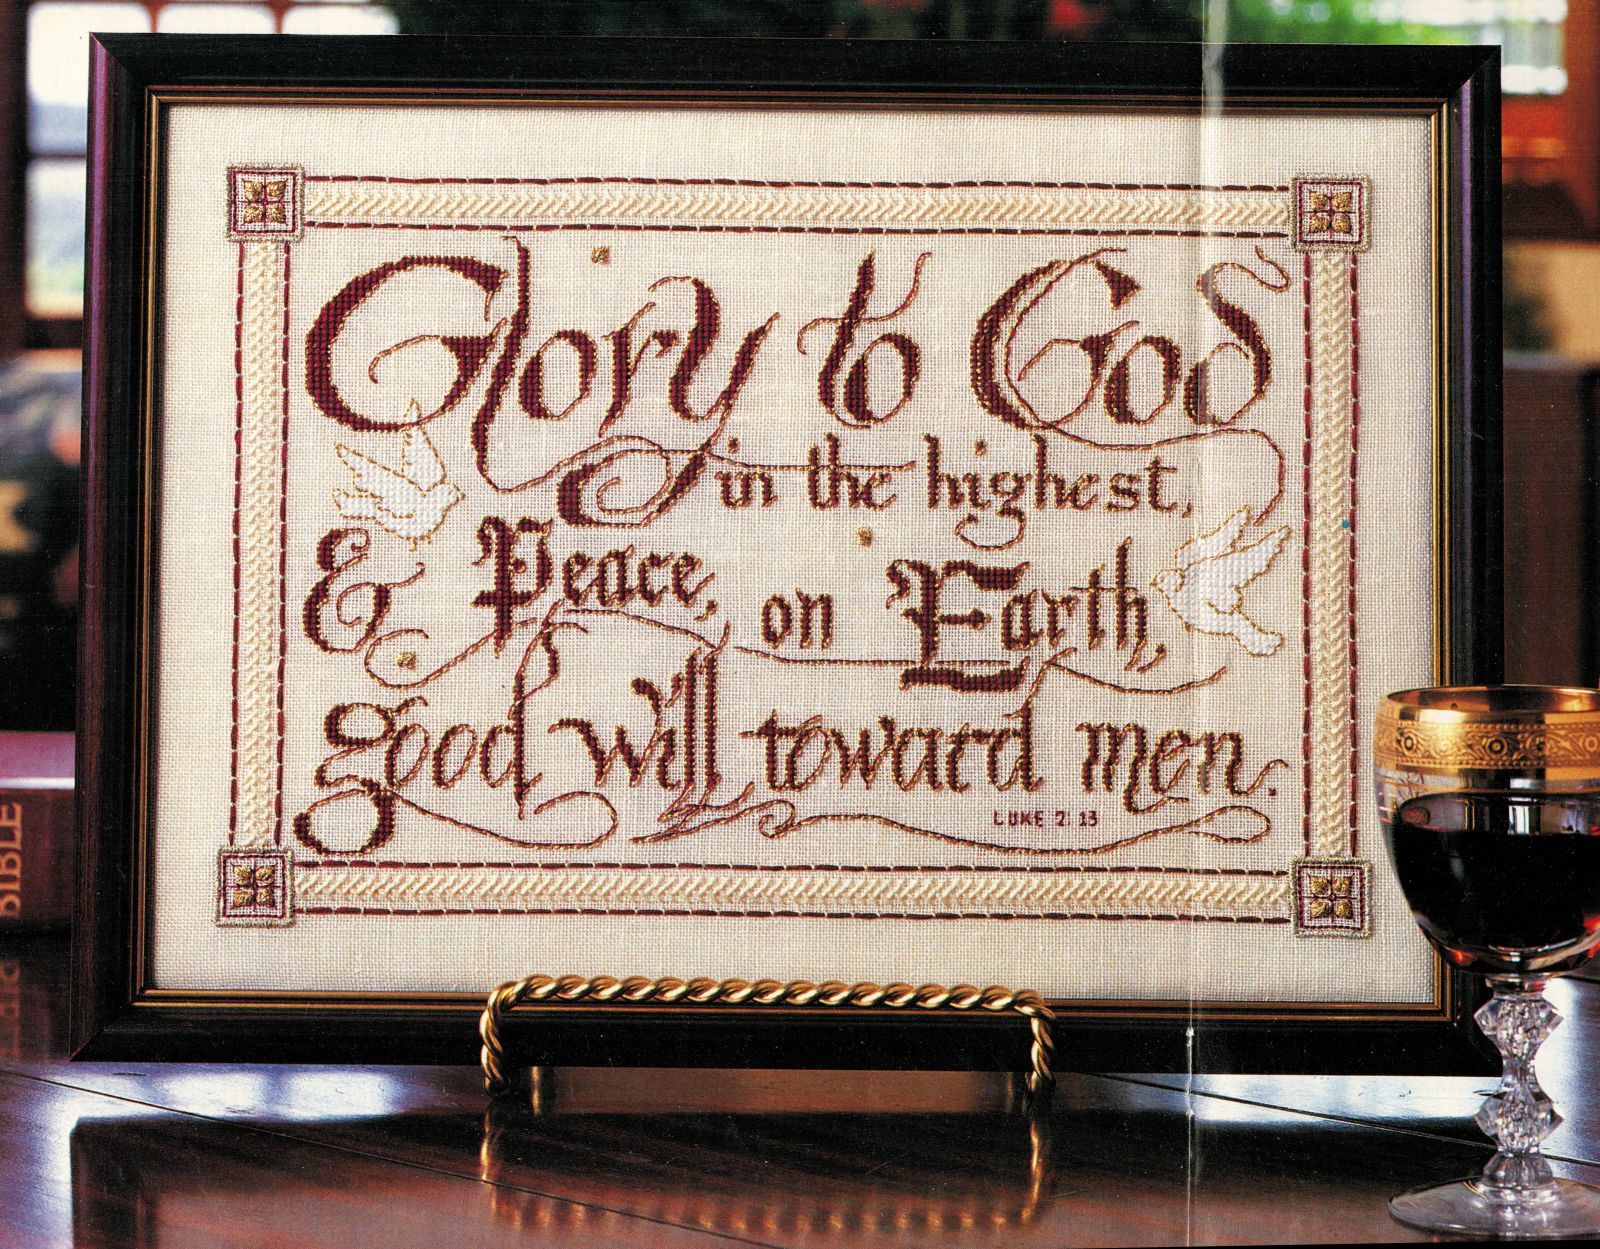 Glory to God
in the highest,
& Peace, on Earth,
good will toward men.
LUKE 2:13
BIBLE